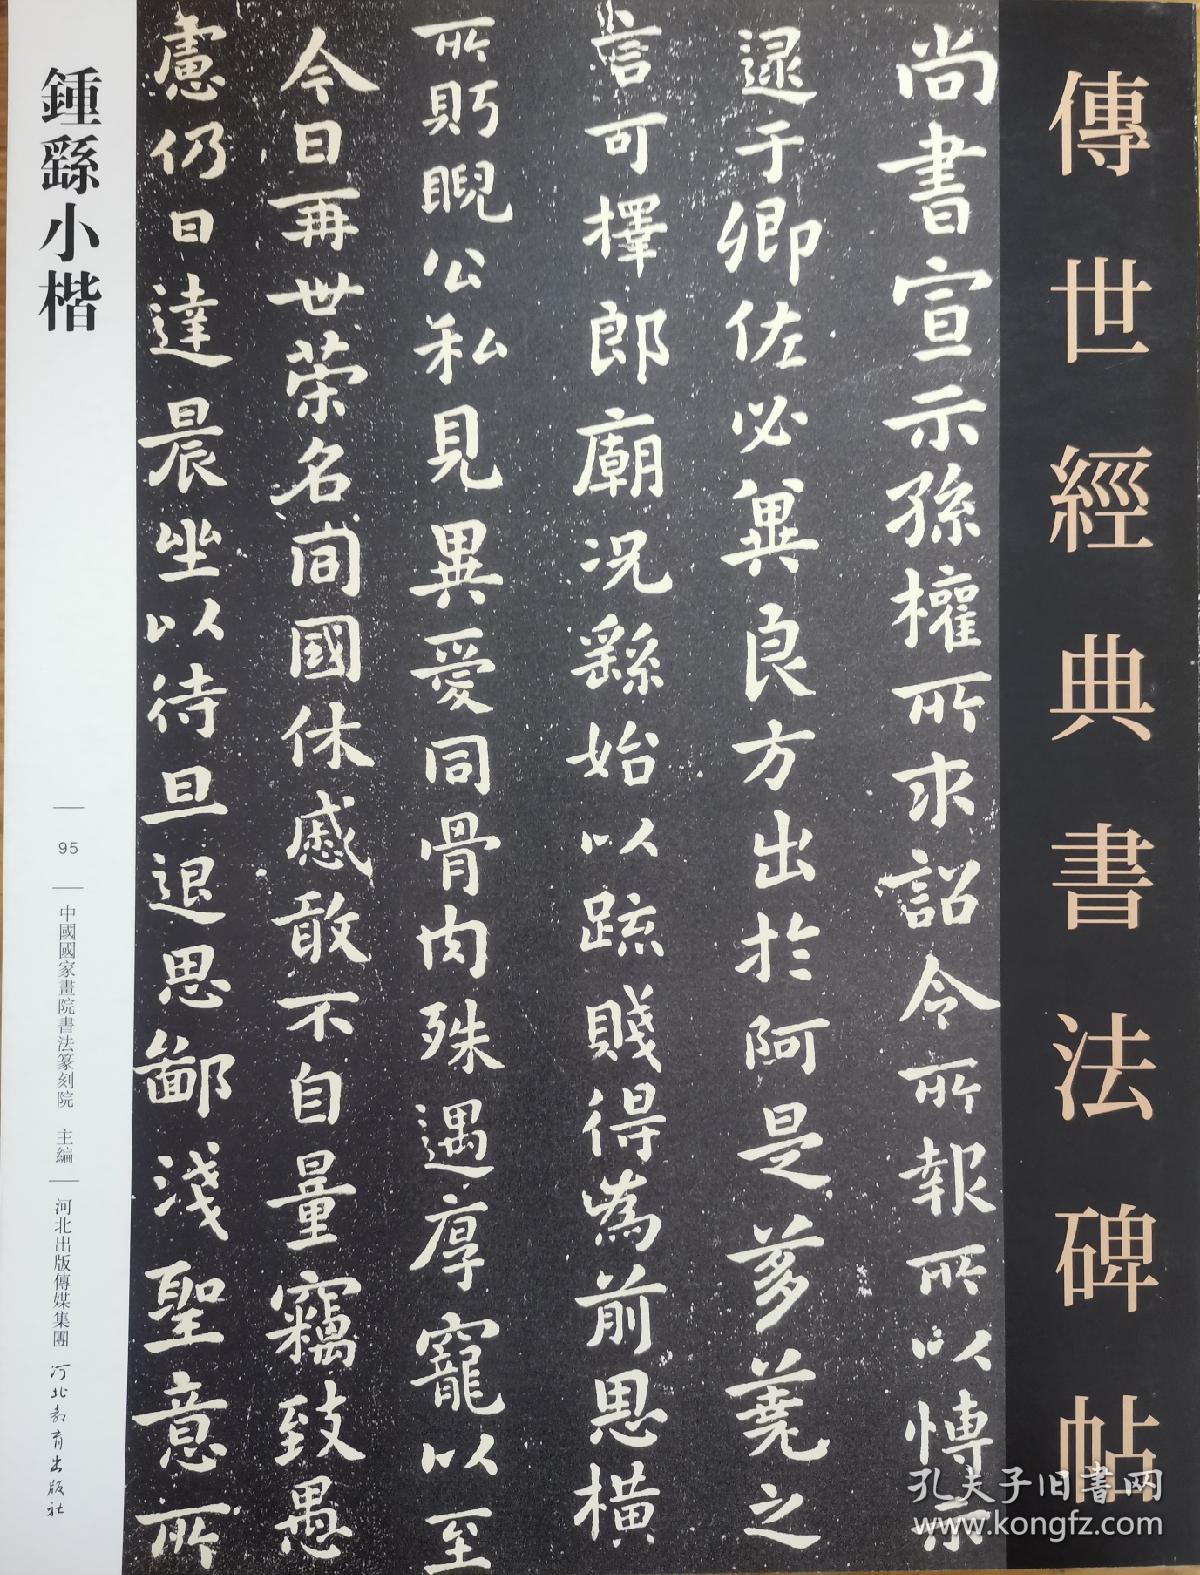 傳世經典書法碑帖
尚書宣示孫權所求詔令所報所以愽示
逯于卿佐必兾良方出於阿是芻蕘之
言可擇郎廟况繇始以踈賤得為前恩橫
所眄睨公私見異愛同骨肉殊遇厚寵以至
今日再世荣名同國休慼敢不自量竊致愚
慮仍日達晨坐以待旦退思鄙淺聖意所
鍾繇小楷
95
中國國家畫院書法篆刻院 主編
河北出版傳媒集團 河北教育出版社
孔夫子旧書网
www.kongfz.com